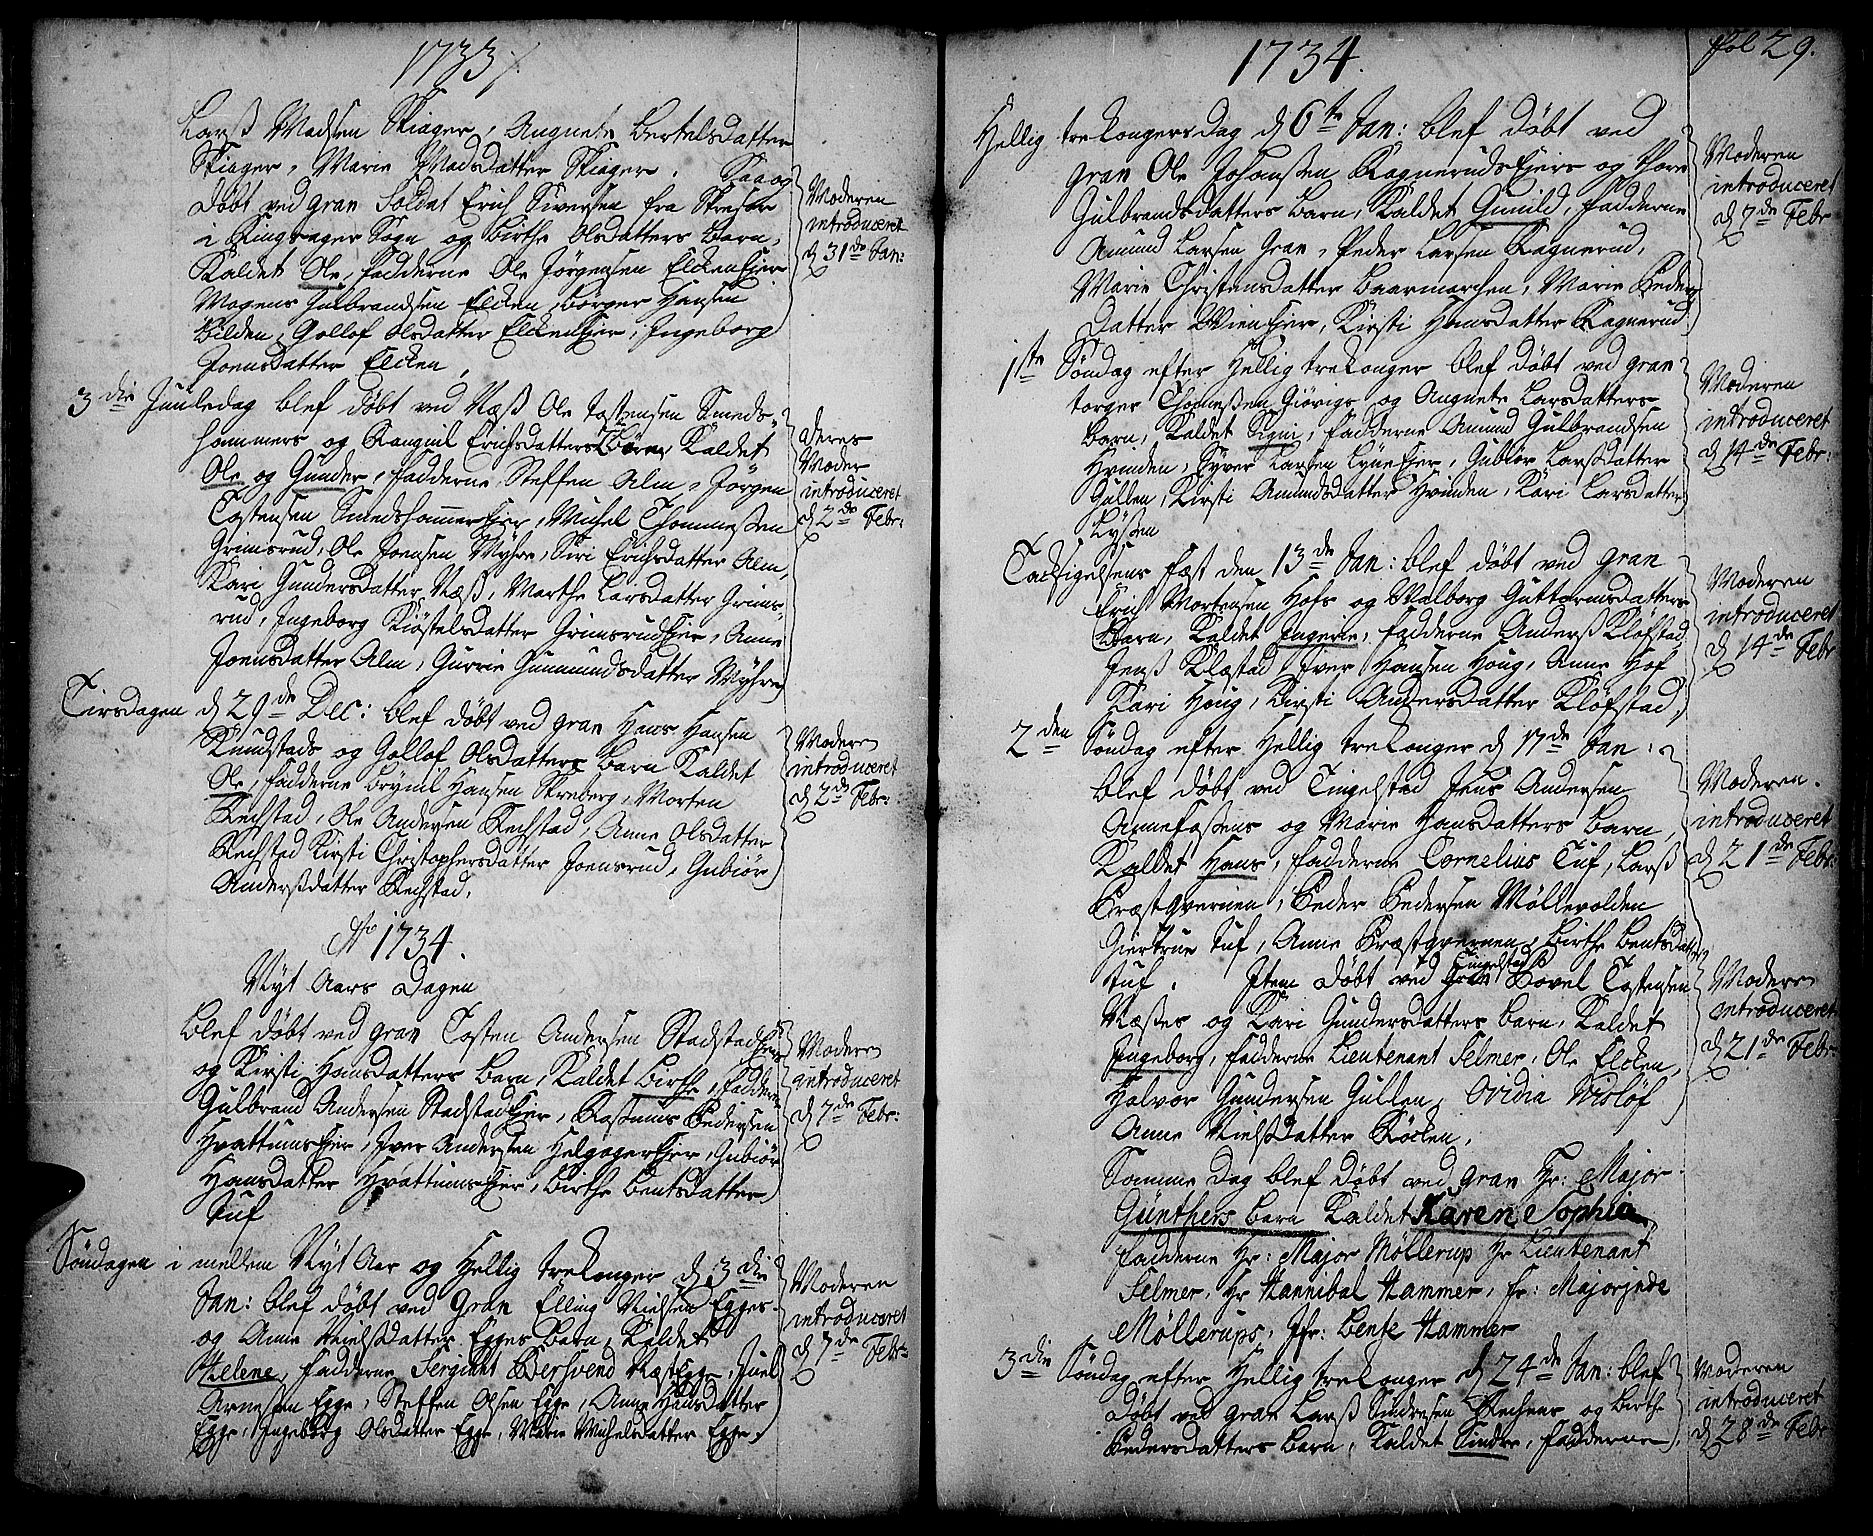 1733
Larß Madsen Skiager, Augnete Bertelsdatter
Skiager, Marie Madsdatter Skiager. Saa og
døbt ved Gran Soldat Erich Siversen fra
i Ringsager Sogn og Birthe Olsdatters Barn,
Kaldet Ole, Fadderne Ole Jørgensen Elckeneier
Mogens Gulbrandsen Elcken, Borger Hansen
Bilden, Gollof Olsdatter Elckeneier, Ingeborg
Joensdatter Elcken,
Moderen
introduceret
d 31de Jan:
3die Juuledag blef døbt ved Næß Ole Tostensen Smeds-
hammers og Rangnil Erichsdatters Børn, Kaldet
Ole og Gunder, Fadderne Steffen Alm, Jørgen
Tostensen Smedshammereier, Michel Thommesen
Grimsrud, Ole Joensen Myhre, Siri Erichsdatter Alm,
Kari Gundersdatter Næß, Marthe Larsdatter Grims-
rud, Ingeborg Kiøstelsdatter Grimsrudeier, Anne
Joensdatter Alm, Gurrie Gunmundsdatter Myhre
deres
Moder
introduceret
d 2de Febr:
Tirsdagen d 29de Dec: blef døbt ved Gran Hans Hansen
Kundstads og Gollof Olsdatters Barn Kaldet
Ole, Fadderne Brynil Hansen Skreberg, Morten
Rechstad, Ole Andersen Rechstad, Anne Olsdatter
Rechstad Kirsti Christophersdatter Joensrud, Gubiør
Andersdatter Rechstad,
Moderen
introduceret
d 2de Febr:
Ao 1734.
Nyt Aars Dagen
blef døbt ved Gran Tosten Andersen Stadstadeiers
og Kirsti Hansdatters Barn, Kaldet Birthe, Fadderne
Gulbrand Andersen Stadstadeier, Rasmus Pedersen
Hvattumseier, Iver Andersen Helgagereier, Gubiør
Hansdatter Hvattumseier, Birthe Bentsdatter
Tuf
Moderen
introduceret
d 7de Febr:
Søndagen i mellem Nyt Aar og Hellig trekonger d 3die
Jan: blef døbt ved Gran Elling Nielsen Egges
og Anne Nielsdatter Egges Barn, Kaldet
Helene, Fadderne Sergiant Bersvend Næs Egge, Juel
Arnesen Egge, Steffen Olsen Egge, Anne Hansdatter
Egge, Ingeborg Olsdatter Egge, Marie Michelsdatter Egge.
Moderen
introduceret
d 7de Febr:
1734.
Fol 29.
Hellig trekongersdag d 6te Jan: blef døbt ved
Gran Ole Johansen Ragnerudseiers og Thore
Gulbrandsdatters Barn, Kaldet Gunild, Fadderne
Amund Larsen Gran, Peder Larsen Ragnerud,
Marie Christensdatter Baarmarchen, Marie Peders
Datter Wieneier, Kirsti Hansdatter Ragnerud
Moderen
introduceret
d 7de Febr
1ste Søndag efter Hellig trekonger blef døbt ved Gran
Torger Thomesen Giøvigs og Augnete Larsdatters
Barn, Kaldet Signi, Fadderne Amund Gulbrandsen
Hvinden, Syver Larsen Lyneeier, Gubiør Larsdatter
Gullen, Kirsti Amundsdatter Hvinden, Kari Larsdatter
Lysen
Moderen
introduceret
d 14de Febr:
Tacksigelsens Fæst den 13de Jan: blef døbt ved Gran
Erich Mortensen Hofs og Walborg Guttormsdatters
Barn, Kaldet Ingerie, Fadderne Anders Kløfstad,
Jens Klæstad Iver Hansen Houg, Anne Hof
Kari Houg, Kirsti Andersdatter Kløfstad,
Moderen
introduceret
d 14de Febr
2den Søndag efter Hellig trekonger d 17de Jan:
blef døbt ved Tingelstad Jens Andersen
Annefossens og Marie Hansdatters Barn,
Kaldet Hans, Fadderne Cornelius Tuf, Larß
Præstqvernen, Peder Pedersen Møllevolden
Giertrue Tuf, Anne Præstqvernen, Birthe Bentsdatter
Tuf. Item døbt ved Tingelstad Povel Tostensen
Næsses og Kari Gundersdatters Barn, Kaldet
Ingeborg, Fadderne Lieutenant Selmer, Ole Elcken,
Halvor Gundersen Gullen, Ovidia Nisløf
Anne Nielsdatter Røcken,
Moderen
introduceret
d 21de Febr:
Moderen
introduceret
d 21de Febr:
Samme Dag blef døbt ved Gran Hr: Major
Günthers Barn Kaldet Karen Sophia
Fadderne Hr: Major Møllerup Hr Lieutenant
Selmer, Hr Hannibal Hammer, Fr: Majorinde
Møllerups, Jfr: Bente Hammer
3die Søndag efter Hellig trekonger d 24de Jan: blef
døbt ved Gran Larß Sindresen Rechens og Birthe
Pedersdatters Barn, Kaldet Sindre, Fadderne
Moderen
introduceret
d 28de Febr